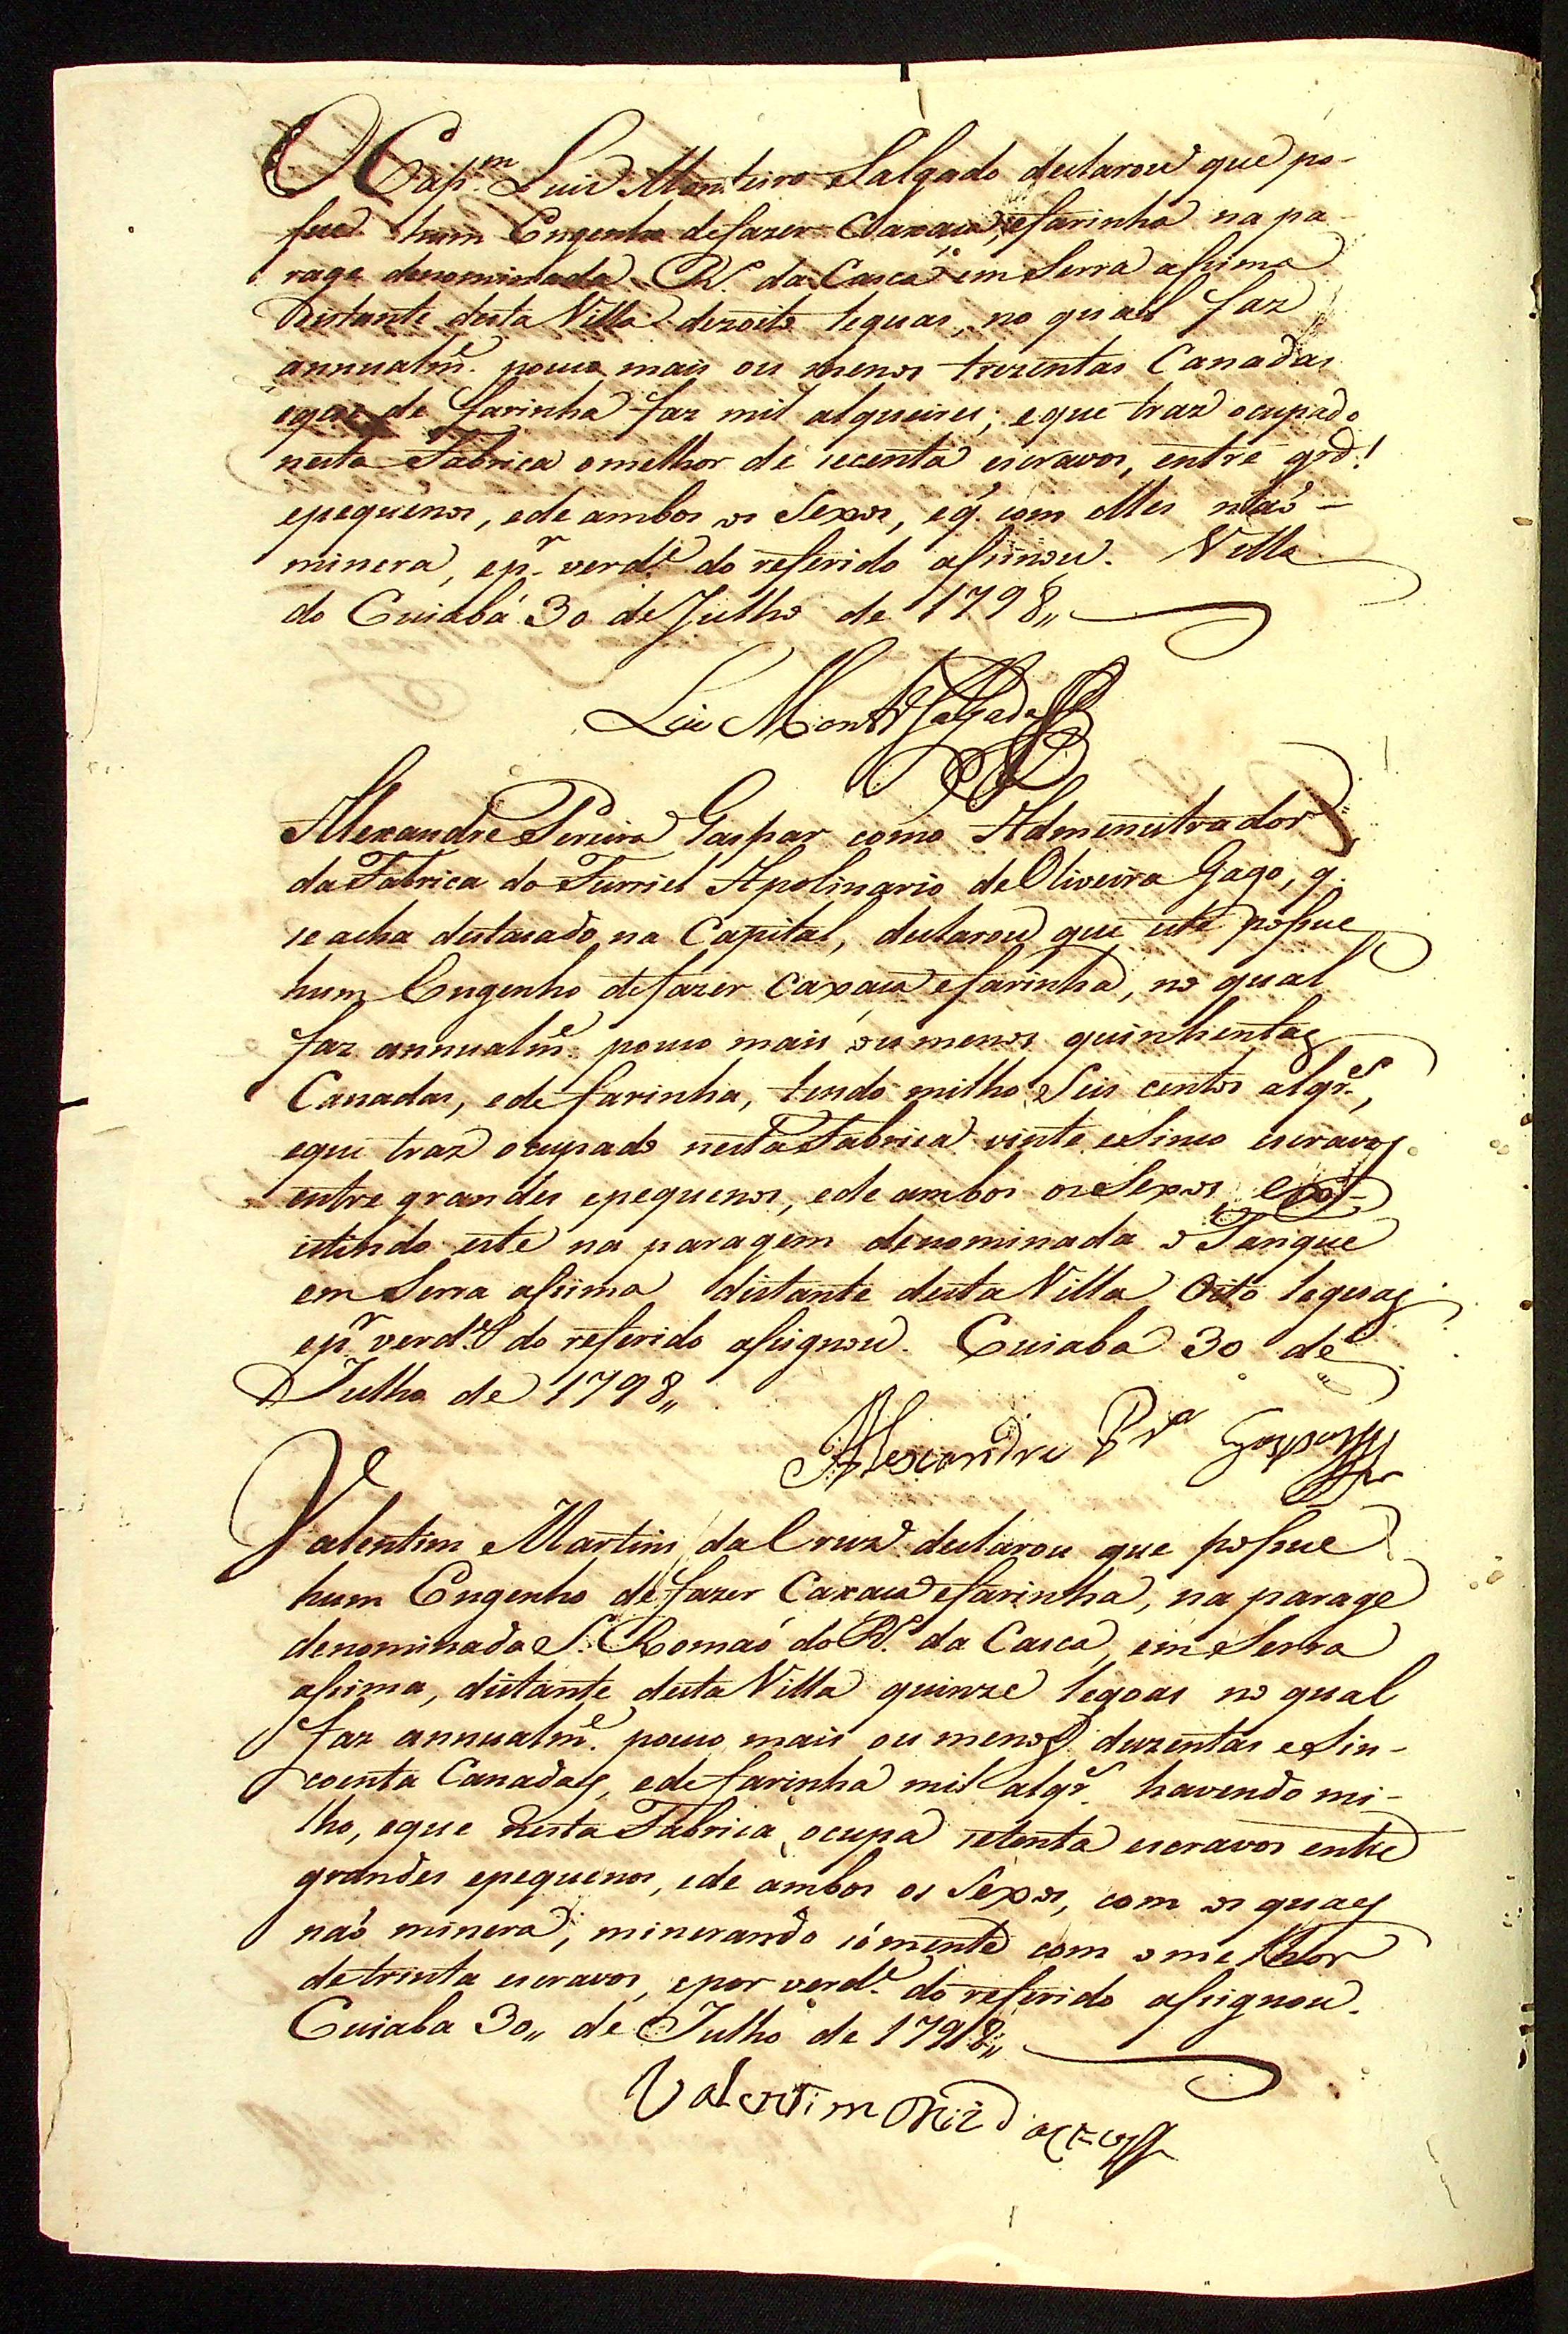 O Cap.m Luis Monteiro Salgado declarou que po-
sue hum Engenho de fazer Caxaça, efarinha na pa
rage denominada R.º da Casca em Serra asima
distante desta Villa dezoito leguas, no qual faz
annualm.e pouco mais ou menos trezentas Canadas
eque de farinha faz mil alqueires; eque traz ocupado
nesta Fabrica omelhor de secenta escravos, entre grd.s
epequenos, ede ambos os Sexos, eq. com elles naó
minera, ep.r verd.e do referido asinou. Villa
do Cuiabá 30 de Julho de 1798,,
Luis Montr.º Salgado
Alexandre Pereira Gaspar como Admenistrador
da Fabrica do Furriel Apolinario de Oliveira Gago, q.
se acha destacado na Capital, declarou que este posue
hum Engenho defazer Caxaça efarinha, no qual
faz annualm.e pouco mais ou menos quinhentas
Canadas, ede farinha, tendo milho Seis centos alqr.es,
eque traz ocupado nesta Fabrica vinte eSinco escravos
entre grandes epequenos, ede ambos os Sexos, ex
istindo este na paragem denominada o Tanque
em Serra asima distante desta Villa Oito leguas
ep.r verd.e do referido asignou. Cuiaba 30 de
Julho de 1798,,
Alexandre Pr.a Gaspar
Valentim Martins da Cruz declarou que posue
hum Engenho defazer Caxaça efarinha, na parage
denominada S. Romaó do R.º da Casca, em Serra
asima, distante desta Villa quinze legoas no qual
faz annualm.e pouco mais ou menos duzentas eSin-
coenta Canadas, ede farinha mil alqr.s havendo mi-
lho, eque nesta Fabrica ocupa setenta escravos entre
grandes epequenos, ede ambos os Sexos, com os quaes
naó minera, minerando sómente com omelhor
detrinta escravos, epor verd.e do referido asignou.
Cuiaba 30,, de Julho de 1798,,
Valentim Miz da Cruz